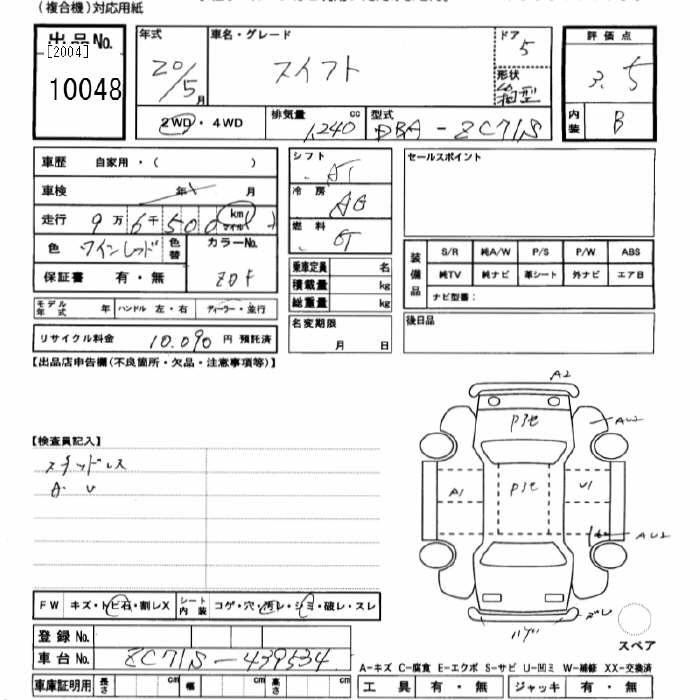 (複合機)対応用紙
出品No.
[2004]
10048
年式
20/5月
車名・グレード
スイフト
ドア
5
形状
箱型
評価点
3.5
内装
B
2WD・4WD
排気量 1,240 cc
型式 DBA-ZC71S
車歴 自家用・( )
車検 年 月
走行 9万6千500 km マイル
色 ワインレッド 色替
カラーNo. ZOF
保証書 有・無
モデル年式 年 ハンドル 左・右 ディーラー・並行
リサイクル料金 10.090 円 預託済
シフト AT
冷房 AC
燃料
乗車定員 名
積載量 kg
総重量 kg
名変期限
月 日
セールスポイント
装備品
S/R 純A/W P/S P/W ABS
純TV 純ナビ 革シート 外ナビ エアB
ナビ型番:
後日品
【出品店申告欄(不良箇所・欠品・注意事項等)】
【検査員記入】
スタッドレス
A U
A2
AU2
A1
U1
AU2
スペア
FW キズ・トビ石・割レX シート内装 コゲ・穴・汚レ・シミ・破レ・スレ
登録No.
車台No. ZC71S-439534
車庫証明用 長さ cm 幅 cm 高さ cm
A-キズ C-腐食 E-エクボ S-サビ U-凹ミ W-補修 XX-交換済
工具 有・無 ジャッキ 有・無